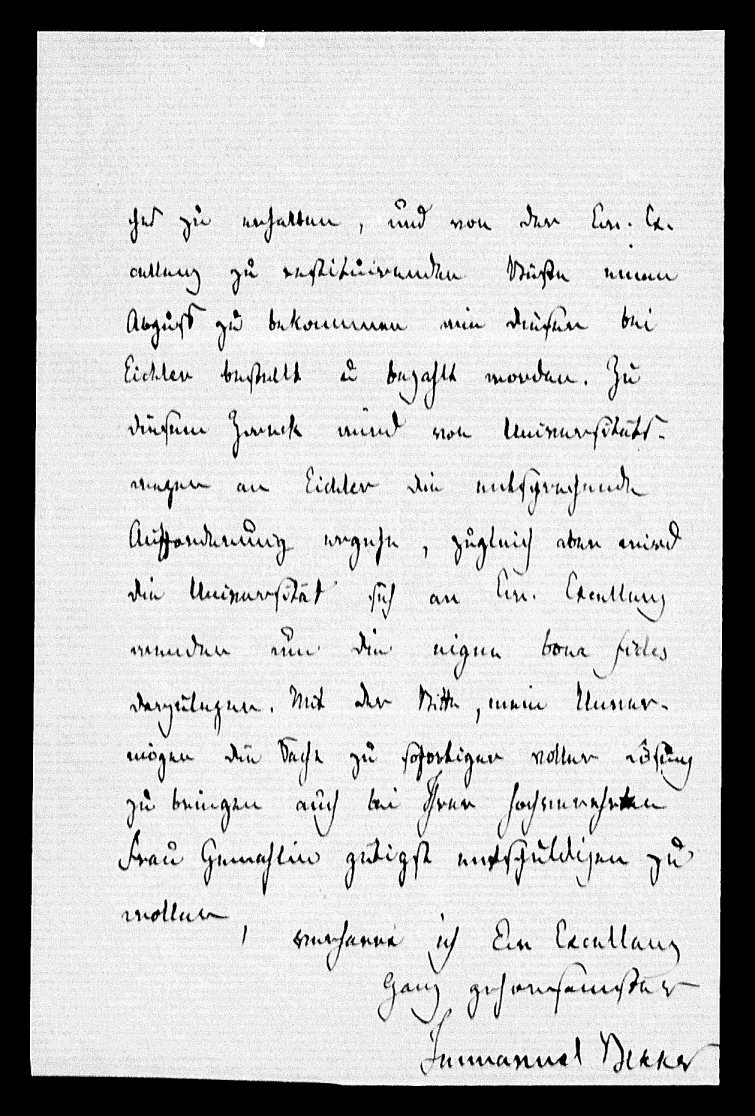 hes zu erhalten, und von der Ew. Ex-
cellenz zu restituirenden Büste einen
Abguß zu bekommen wie diesen bei
Eichler bestellt u bezahlt worden. Zu
diesem Zweck wird von Universitäts-
wegen an Eichler die entsprechende
Aufforderung ergehn, zugleich aber wird
die Universität sich an Ew. Excellenz
wenden um die eigne bona fides
darzulegen. Mit der Bitte, mein Unver-
mögen die Sache zu sofortiger voller Lösung
zu bringen auch bei Ihrer hochverehrten
Frau Gemahlin gütigst entschuldigen zu
wollen, verharre ich Ew Excellenz
Ganz gehorsamster
Immanuel Bekker